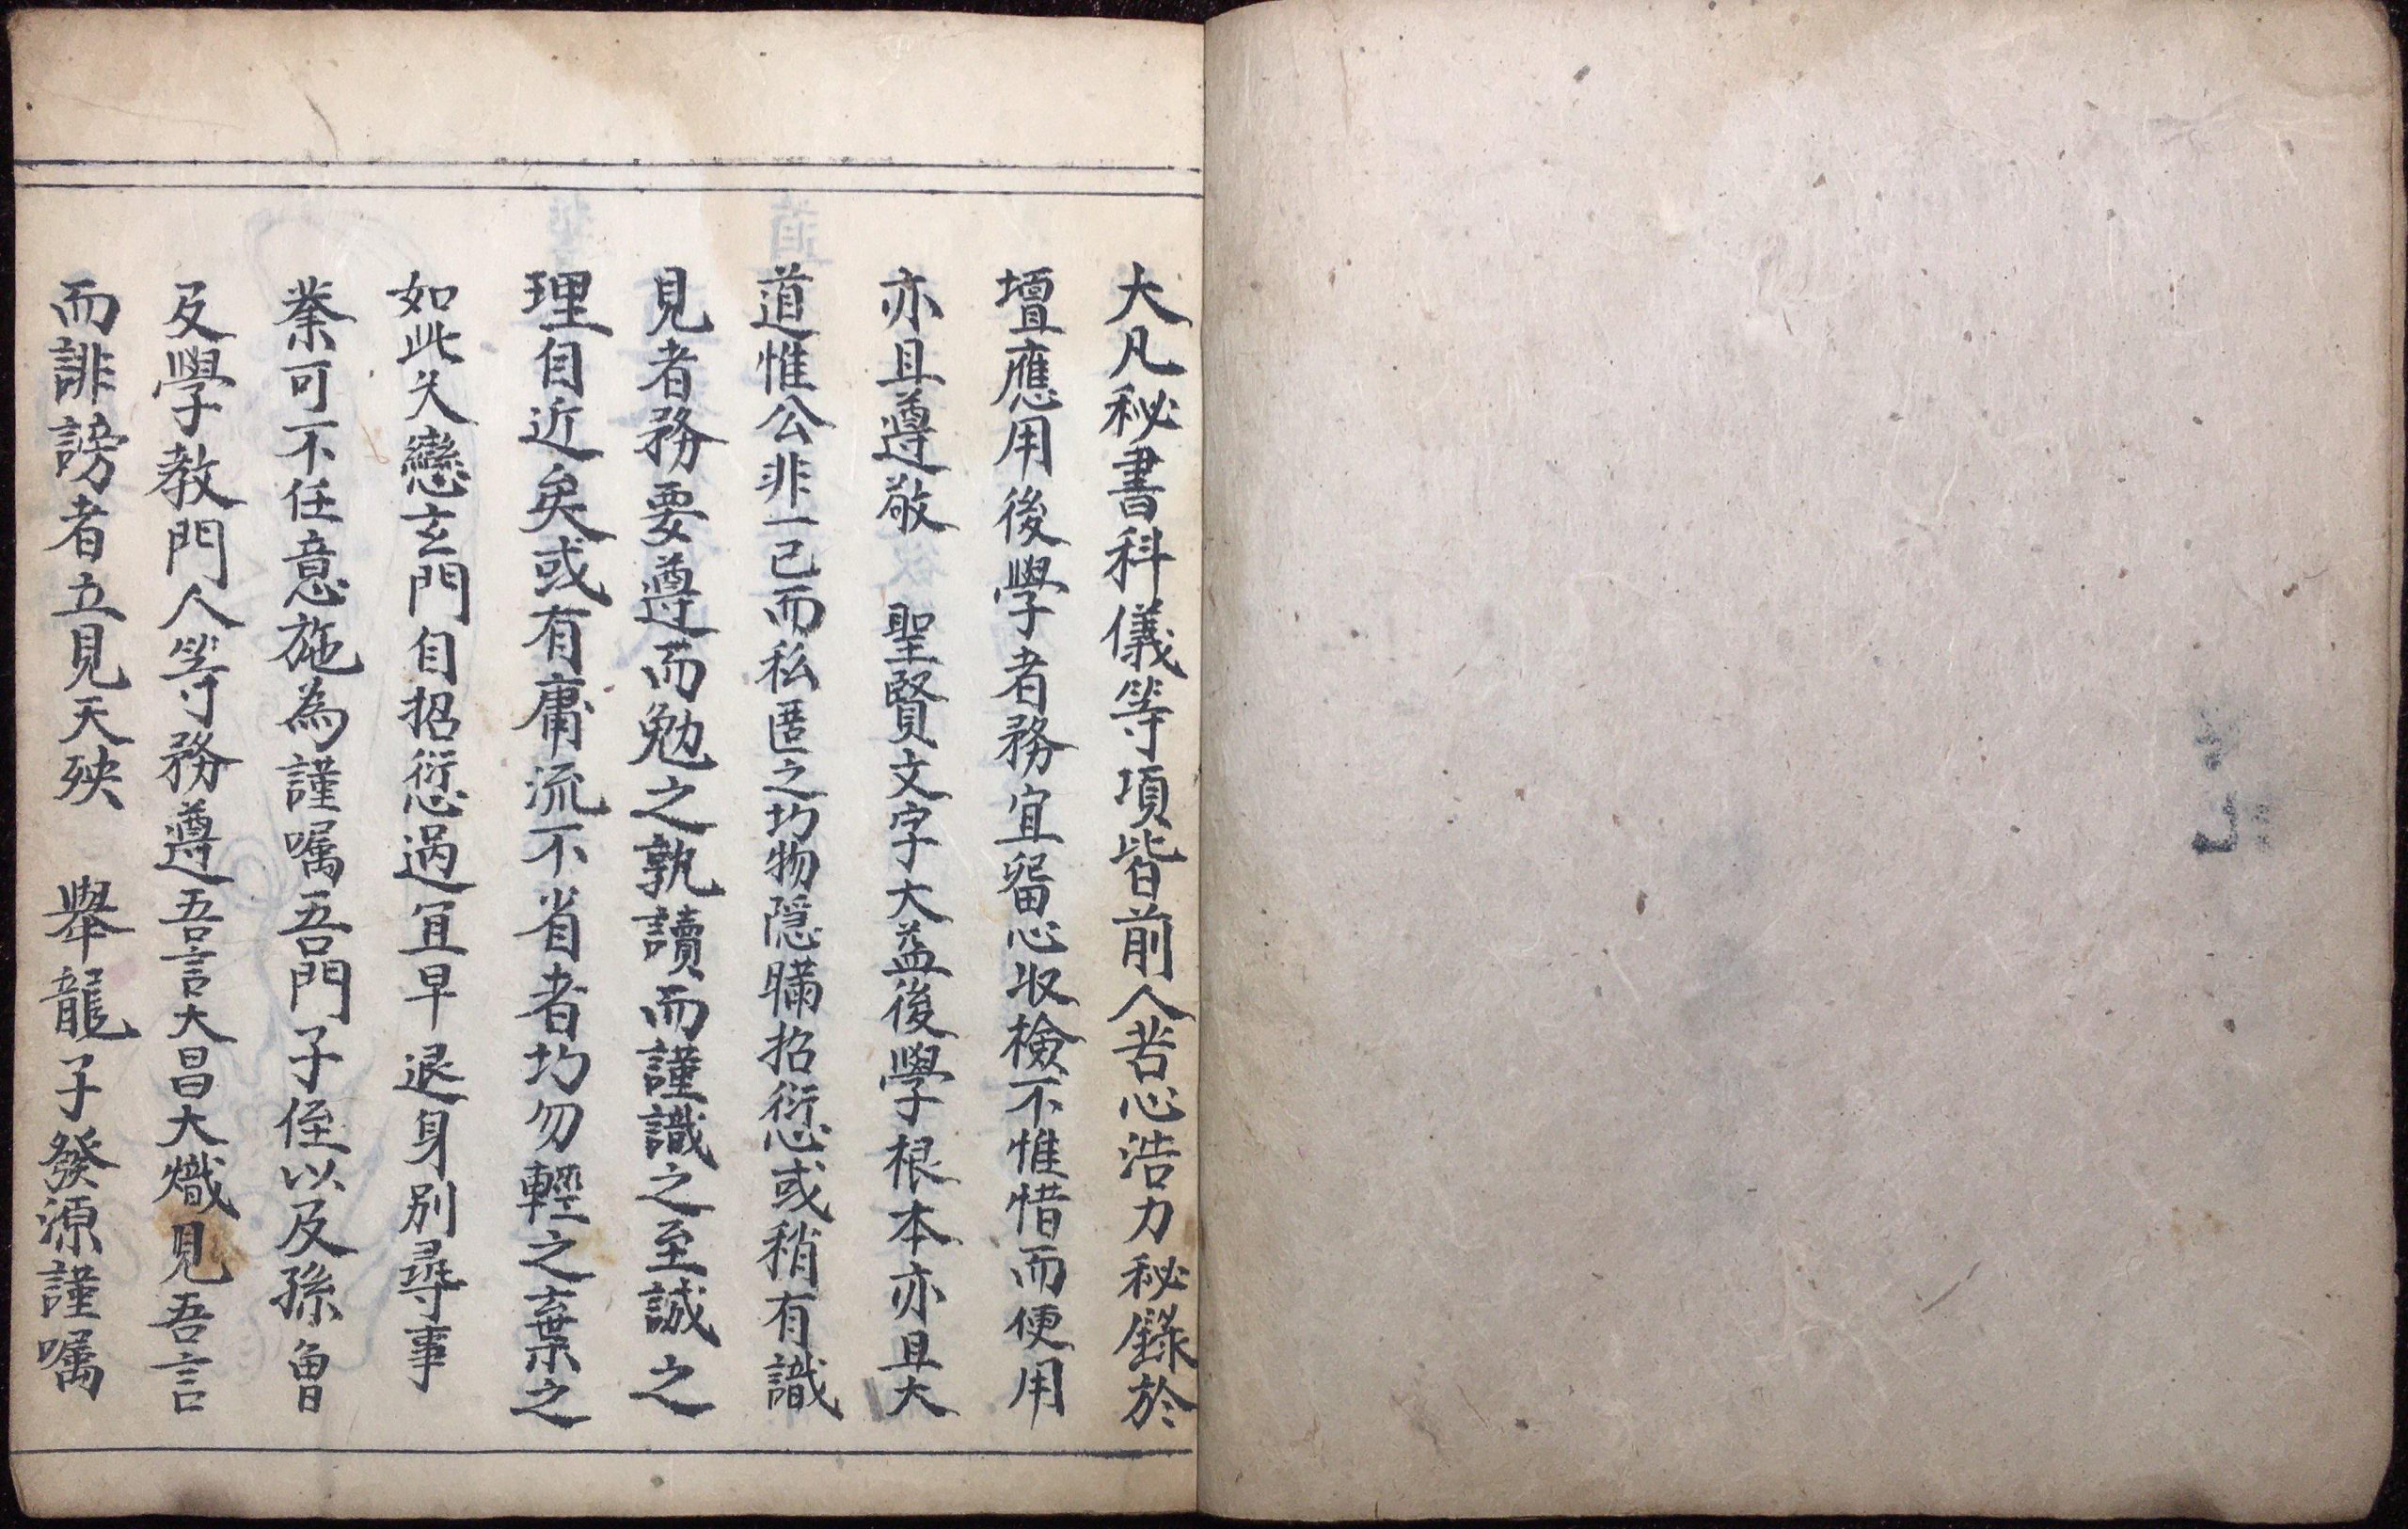 大凡秘書科儀等項皆前人苦心浩力秘錄於
壇應用後學者務宜留心収檢不惟惜而便用
亦且遵敬　聖賢文字大益後學根本亦且大
道惟公非一己而私匿之圴物隱瞞招愆或稍有識
見者務要遵而勉之孰讀而謹識之至誠之
理自近矣或有庸流不省者圴勿輕之棄之
如此犬戀玄門自招愆過宜早退身別尋事
業可不任意施為謹嘱吾門子侄以及孫曾
及學教門人等務遵吾言大昌大熾見吾言
而誹謗者立見天殃　舉龍子發源謹嘱